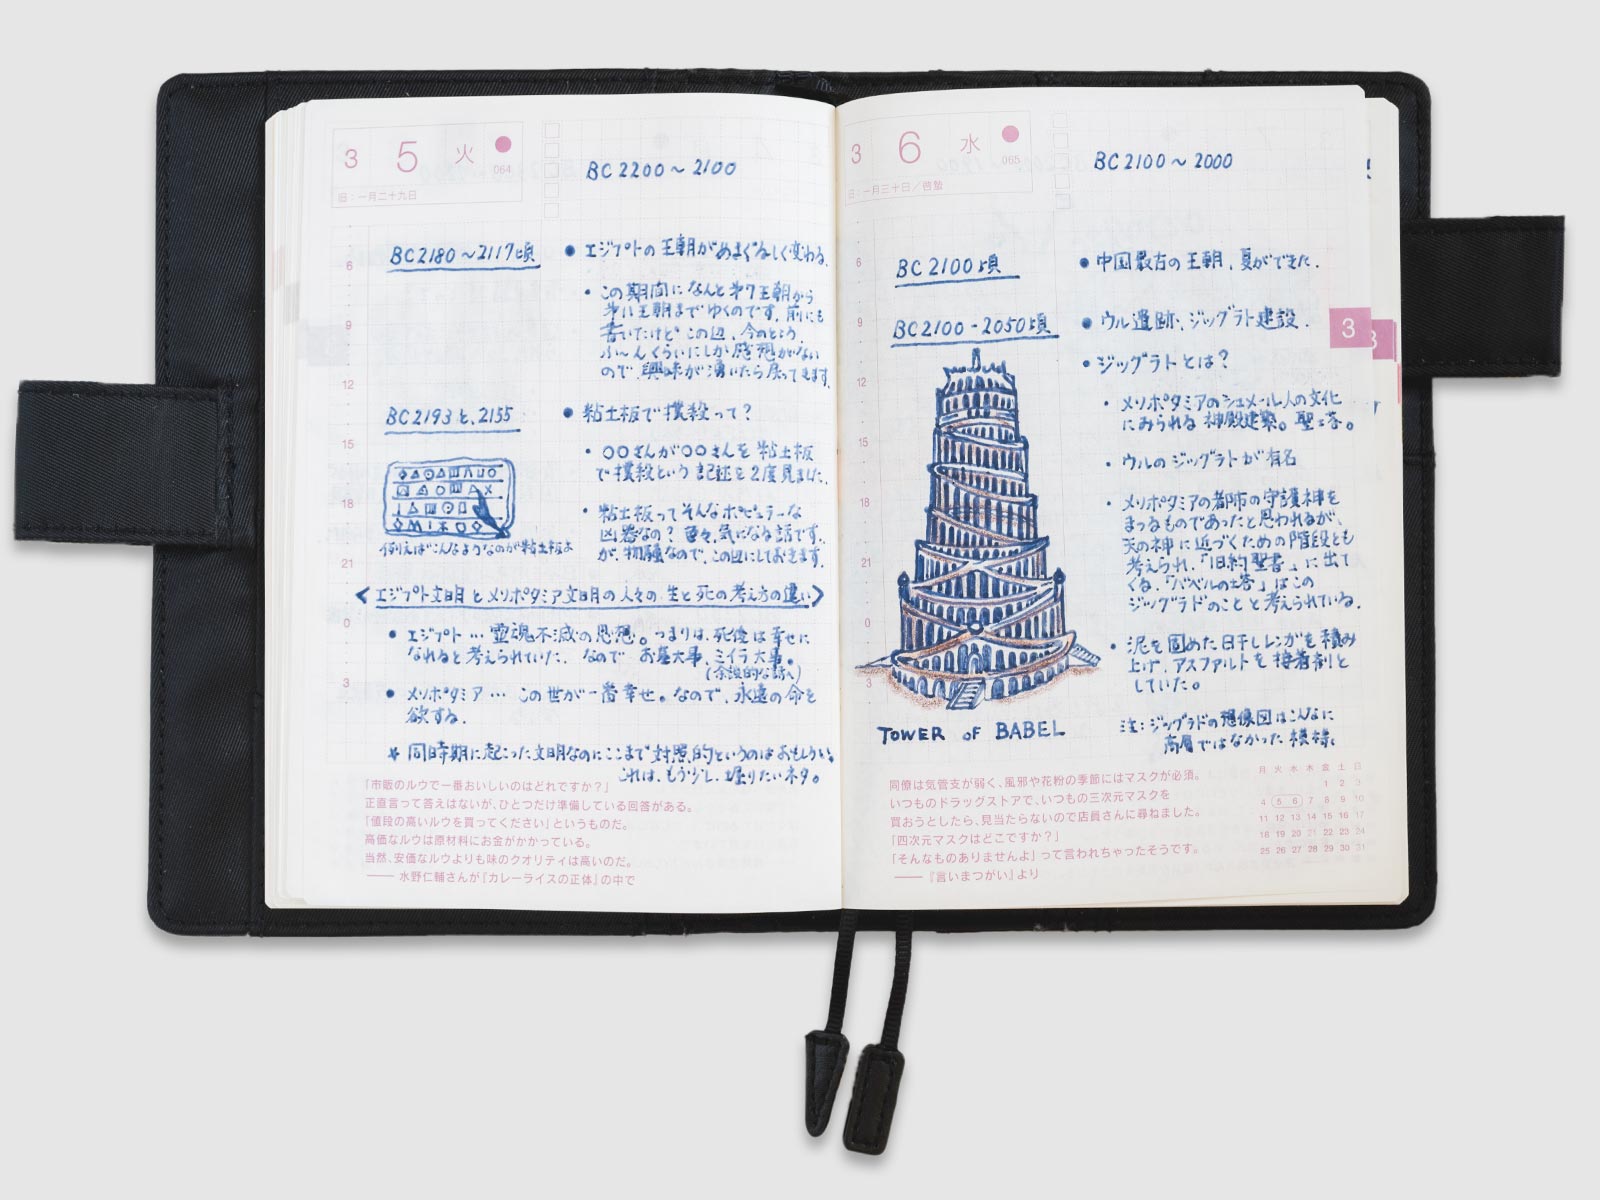 3 5 火
064
旧:一月二十九日
BC 2200～2100
BC2180～2117頃
・エジプトの王朝がめまぐるしく変わる。
・この期間になんと第7王朝から
第11王朝までゆくのです。前にも
書いたけどこの辺、今のところ
ふ～んくらいにしか感想がない
ので、興味が湧いたら戻ってきます。
BC2193と、2155
・粘土板で撲殺って?
・〇〇さんが〇〇さんを粘土板
で撲殺という記述を2度見ました。
・粘土板ってそんなポピュラーな
凶器なの? 色々気になる話です。
が、物騒なので、この辺にしておきます。
例えばこんなようなのが粘土板よ
<エジプト文明とメソポタミア文明の人々の生と死の考え方の違い>
・エジプト…霊魂不滅の思想。つまりは、死後は幸せに
なれると考えられていた。なので お墓大事、ミイラ大事。
(余談的な話へ)
・メソポタミア… この世が一番幸せ。なので、永遠の命を
欲する。
* 同時期に起こった文明なのにここまで対照的というのはおもしろい。
これは、もう少し掘りたいネタ。
6
9
12
15
18
21
0
3
「市販のルウで一番おいしいのはどれですか?」
正直言って答えはないが、ひとつだけ準備している回答がある。
「値段の高いルウを買ってください」というものだ。
高価なルウは原材料にお金がかかっている。
当然、安価なルウよりも味のクオリティは高いのだ。
—— 水野仁輔さんが『カレーライスの正体』の中で
3 6 水
065
旧:一月三十日/啓蟄
BC 2100～2000
BC 2100頃
・中国最古の王朝、夏ができた。
BC2100-2050頃
・ウル遺跡、ジッグラト建設.
・ジッグラトとは?
・メソポタミアのシュメール人の文化
にみられる神殿建築。聖塔。
・ウルのジッグラトが有名
・メソポタミアの都市の守護神を
まつるものであったと思われるが、
天の神に近づくための階段とも
考えられ、「旧約聖書」に出て
くる、「バベルの塔」はこの
ジッグラドのことと考えられている。
・泥を固めた日干しレンガを積み
上げ、アスファルトを接着剤と
していた。
注:ジッグラドの想像図はこんなに
高層ではなかった模様。
TOWER OF BABEL
6
9
12
15
18
21
0
3
3
3
同僚は気管支が弱く、風邪や花粉の季節にはマスクが必須。
いつものドラッグストアで、いつもの三次元マスクを
買おうとしたら、見当たらないので店員さんに尋ねました。
「四次元マスクはどこですか?」
「そんなものありませんよ」って言われちゃったそうです。
——『言いまつがい』より
月 火 水 木 金 土 日
1 2 3
4 5 6 7 8 9 10
11 12 13 14 15 16 17
18 19 20 21 22 23 24
25 26 27 28 29 30 31